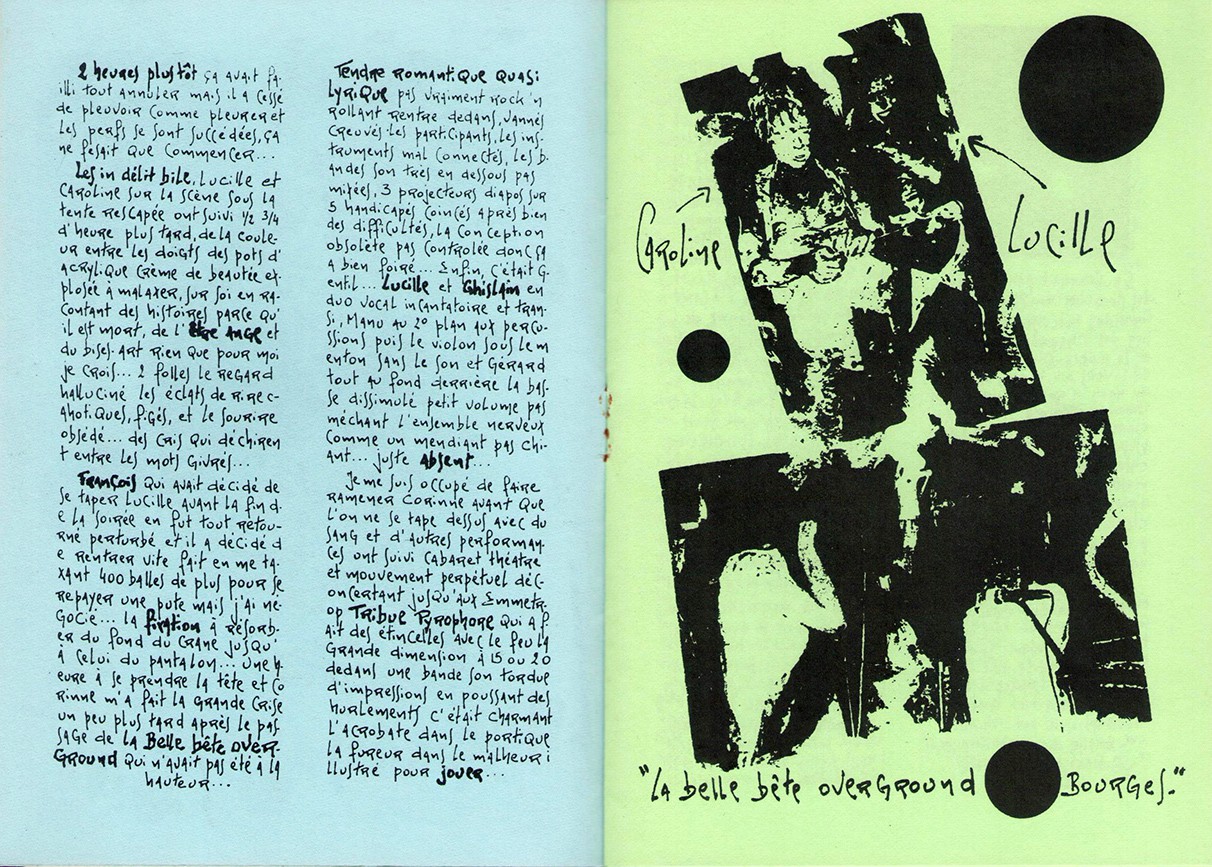 2 heures plus tôt ça avait fa-
illi tout annuler mais il a cessé
de pleuvoir comme pleurer et
les perfs se sont succédées, ça
ne fesait que commencer...
Les in délit bile, Lucille et
Caroline sur la scène sous la
tente rescapée ont suivi 1/2 3/4
d'heure plus tard, de la coule-
ur entre les doigts des pots d'
acrylique crème de beautée ex-
plosée à malaxer, sur soi en ra-
contant des histoires parce qu'
il est mort, de l'être ange et
du bises-art rien que pour moi
je crois... 2 folles le regard
halluciné les éclats de rire c-
ahotiques, figés, et le sourire
obsédé... des cris qui déchiren
t entre les mots givrés...
François qui avait décidé de
se taper Lucille avant la fin d-
e la soirée en fut tout retou-
rné perturbé et il a décidé d
e rentrer vite fait en me ta-
xant 400 balles de plus pour se
repayer une pute mais j'ai né-
gocié... la fixation à résorb-
er du fond du crane jusqu'
à celui du pantalon... une h-
eure à se prendre la tête et Co
rinne m'a fait la grande crise
un peu plus tard après le pas-
sage de la Belle bête over-
ground qui n'avait pas été à la
hauteur...
Tendre romantique quasi
lyrique pas vraiment rock'n
rollant rentre dedans, vannés
crevés les participants, les ins-
truments mal connectés, les b-
andes son très en dessous pas
mixées, 3 projecteurs diapos sur
5 handicapés coincés après bien
des difficultés, la conception
obsolète pas controlée donc ça
a bien foiré... Enfin, c'était g-
entil... Lucille et Ghislain en
duo vocal incantatoire et tran-
si, Manu au 2° plan aux percu-
ssions puis le violon sous le m
enton sans le son et Gérard
tout au fond derrière la bas-
se dissimulé petit volume pas
méchant l'ensemble nerveux
comme un mendiant pas chi-
ant... juste absent...
Je me suis occupé de faire
ramener Corinne avant que
l'on ne se tape dessus avec du
sang et d'autres performan-
ces ont suivi cabaret théatre
et mouvement perpétuel déc-
oncertant jusqu'aux Emmetr-
op Tribul Pyrophore qui a f-
ait des étincelles avec le feu la
grande dimension à 15 ou 20
dedans une bande son tordue
d'impressions en poussant des
hurlements c'était charmant
l'acrobate dans le portique
la fureur dans le malheur i
llustré pour jouer...
Caroline
Lucille
"La belle bête overground Bourges."